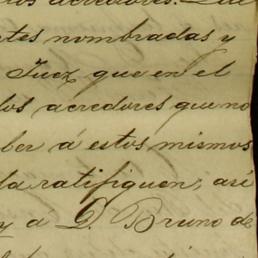 los acredores. Que
rtes nombradas y
Juez que en el
los acredores que no
ber á estos mismos
la ratifiquen, asi
y á D. Bruno de